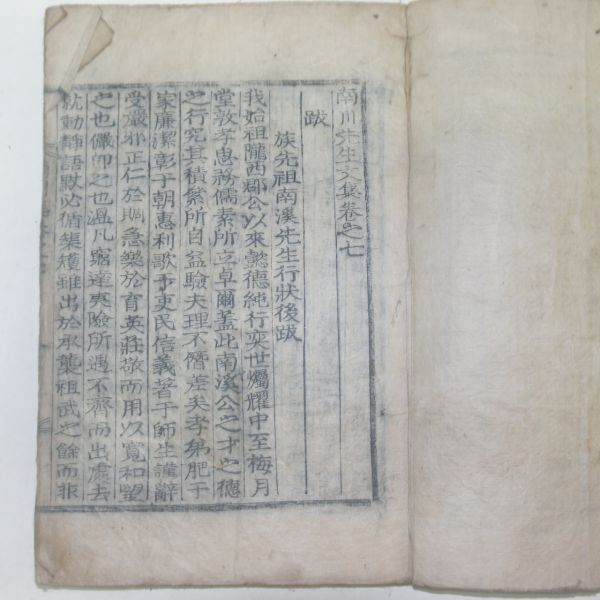 南川先生文集卷之七
跋
族先祖南溪先生行狀後跋
我始祖隴西郡公以來懿德純行奕世燭耀中至梅月
堂敦孝惠務儒素所立卓爾蓋此南溪公之才之德
之行究其積絫所自益驗夫理不僭差矣孝弟肥于
家廉潔彰于朝惠利歌于吏民信義著于師生謹辭
受嚴邪正仁於賙急樂於育英莊敬而用以寬和望
之也儼卽之也溫凡窮達夷險所遇不齊而出處去
就動靜語默必循榘矱雖出於承襲祖武之餘而非